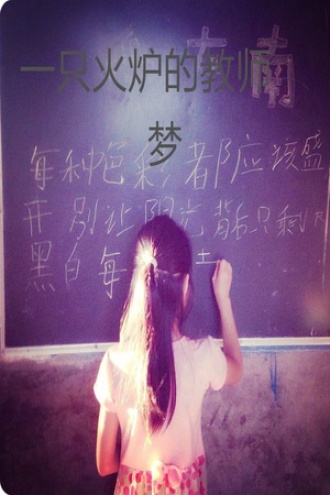 一只火炉的教师
梦
东南
每种色彩都应该盛
开别让阳光背后只剩下
黑白每一